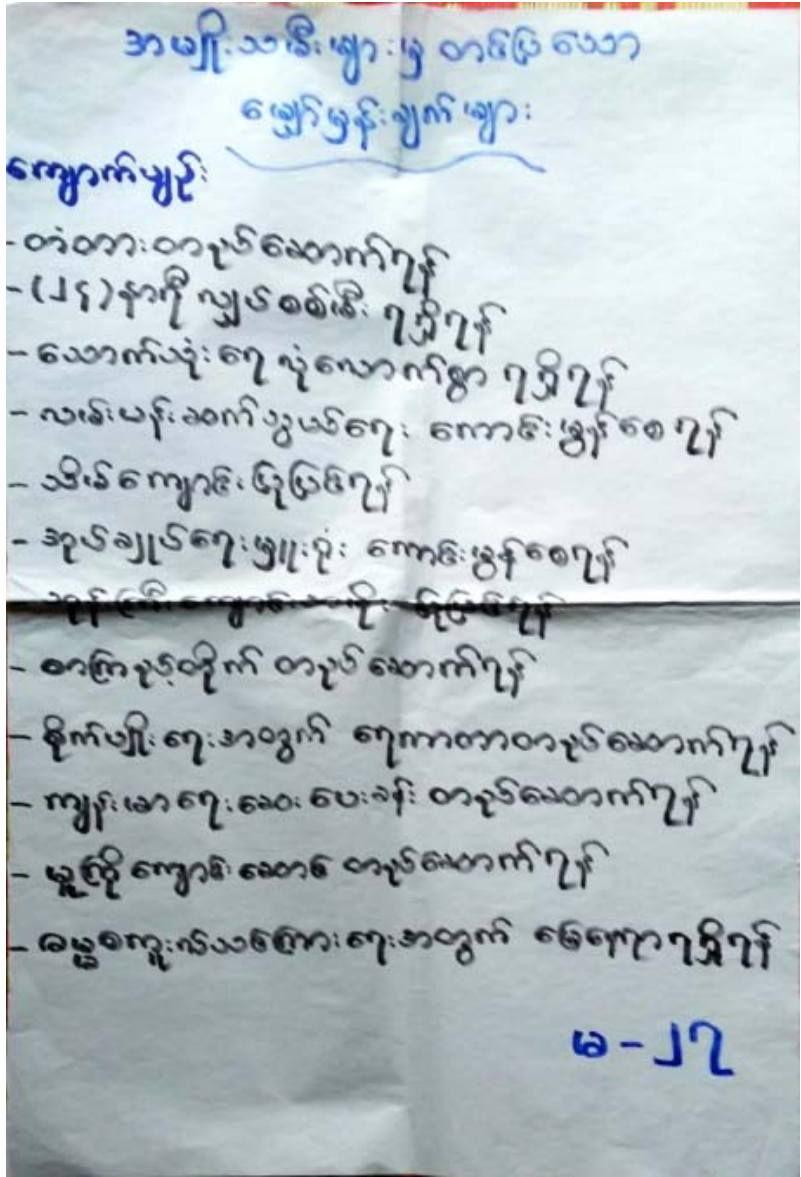 အမျိုးသမီးများမှ တင်ပြသော
မျှော်မှန်းချက်များ
ကျောက်မျဉ်း
- တံတားတည်ဆောက်ရန်
- (၂၄) နာရီ လျှပ်စစ်မီး ရရှိရန်
- သောက်သုံးရေ လုံလောက်စွာ ရရှိရန်
- လမ်းပန်းဆက်သွယ်ရေး ကောင်းမွန်စေရန်
- သိမ်ကျောင်းပြုပြင်ရန်
- အုပ်ချုပ်ရေးမှူးရုံး ကောင်းမွန်စေရန်
- စာကြည့်တိုက် တည်ဆောက်ရန်
- စိုက်ပျိုးရေးအတွက် ရေကာတာတည်ဆောက်ရန်
- ကျန်းမာရေးဆေးပေးခန်း တည်ဆောက်ရန်
- မူကြိုကျောင်းဆောင် တည်ဆောက်ရန်
- ဓမ္မစကူးလ်သင်ကြားရေးအတွက် မြေနေရာရရှိရန်
မ - ၂၇